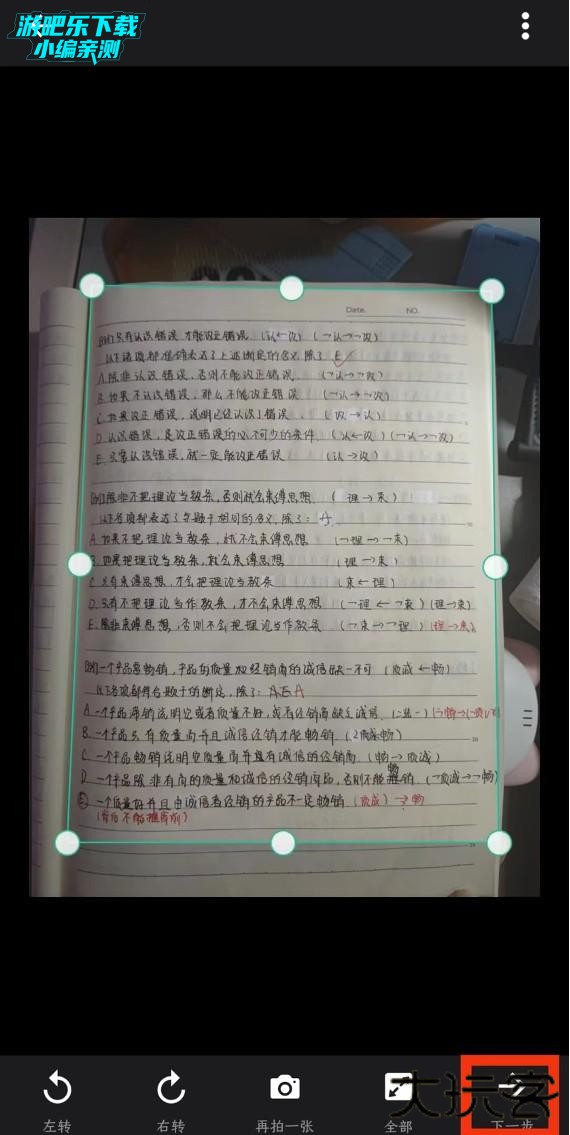 游吧乐下载
小编亲测
Date. NO.
例1只有认识错误 才能改正错误 (认←改) (¬认→¬改)
以下诸项都准确表达了上述断定的含义,除了 E
A.除非认识错误,否则不能改正错误. (¬认→¬改)
B.如果不认识错误,那么不能改正错误 (¬认→¬改)
C.如果改正错误,说明已经认识了错误. (改→认)
D.认识错误,是改正错误的必不可少的条件. (认←改) (¬认→¬改)
E.只要认识错误,就一定能改正错误 (认→改)
除非不把理论当教条,否则就会束缚思想. (理→束)
以下各项都表达了与题干相同的含义,除了: A
A.如果不把理论当教条,就不会束缚思想 (¬理→¬束)
B.如果把理论当教条,就会束缚思想 (理→束)
C.只有束缚思想,才会把理论当教条 (束←理)
D.只有不把理论当作教条,才不会束缚思想 (¬理←¬束) (理→束)
E.除非束缚思想,否则不会把理论当作教条 (¬束→¬理) (理→束)
一个产品要畅销,产品的质量和经销商的诚信缺一不可 (质诚←畅)
以下各项都符合题干的断定,除了: A
A.一个产品滞销说明它或者质量不好,或者经销商缺乏诚信.
B.一个产品只有质量高并且诚信经销才能畅销 (质诚←畅)
C.一个产品畅销说明它质量高并且有诚信的经销商. (畅→质诚)
D.一个产品除非有高的质量和诚信的经销商,否则不能畅销. (¬质诚→¬畅)
E.一个质量好并且由诚信者经销的产品不一定畅销 (质诚)→?畅
(肯后不能推肯前)
左转 右转 再拍一张 全部 下一步
大玩客